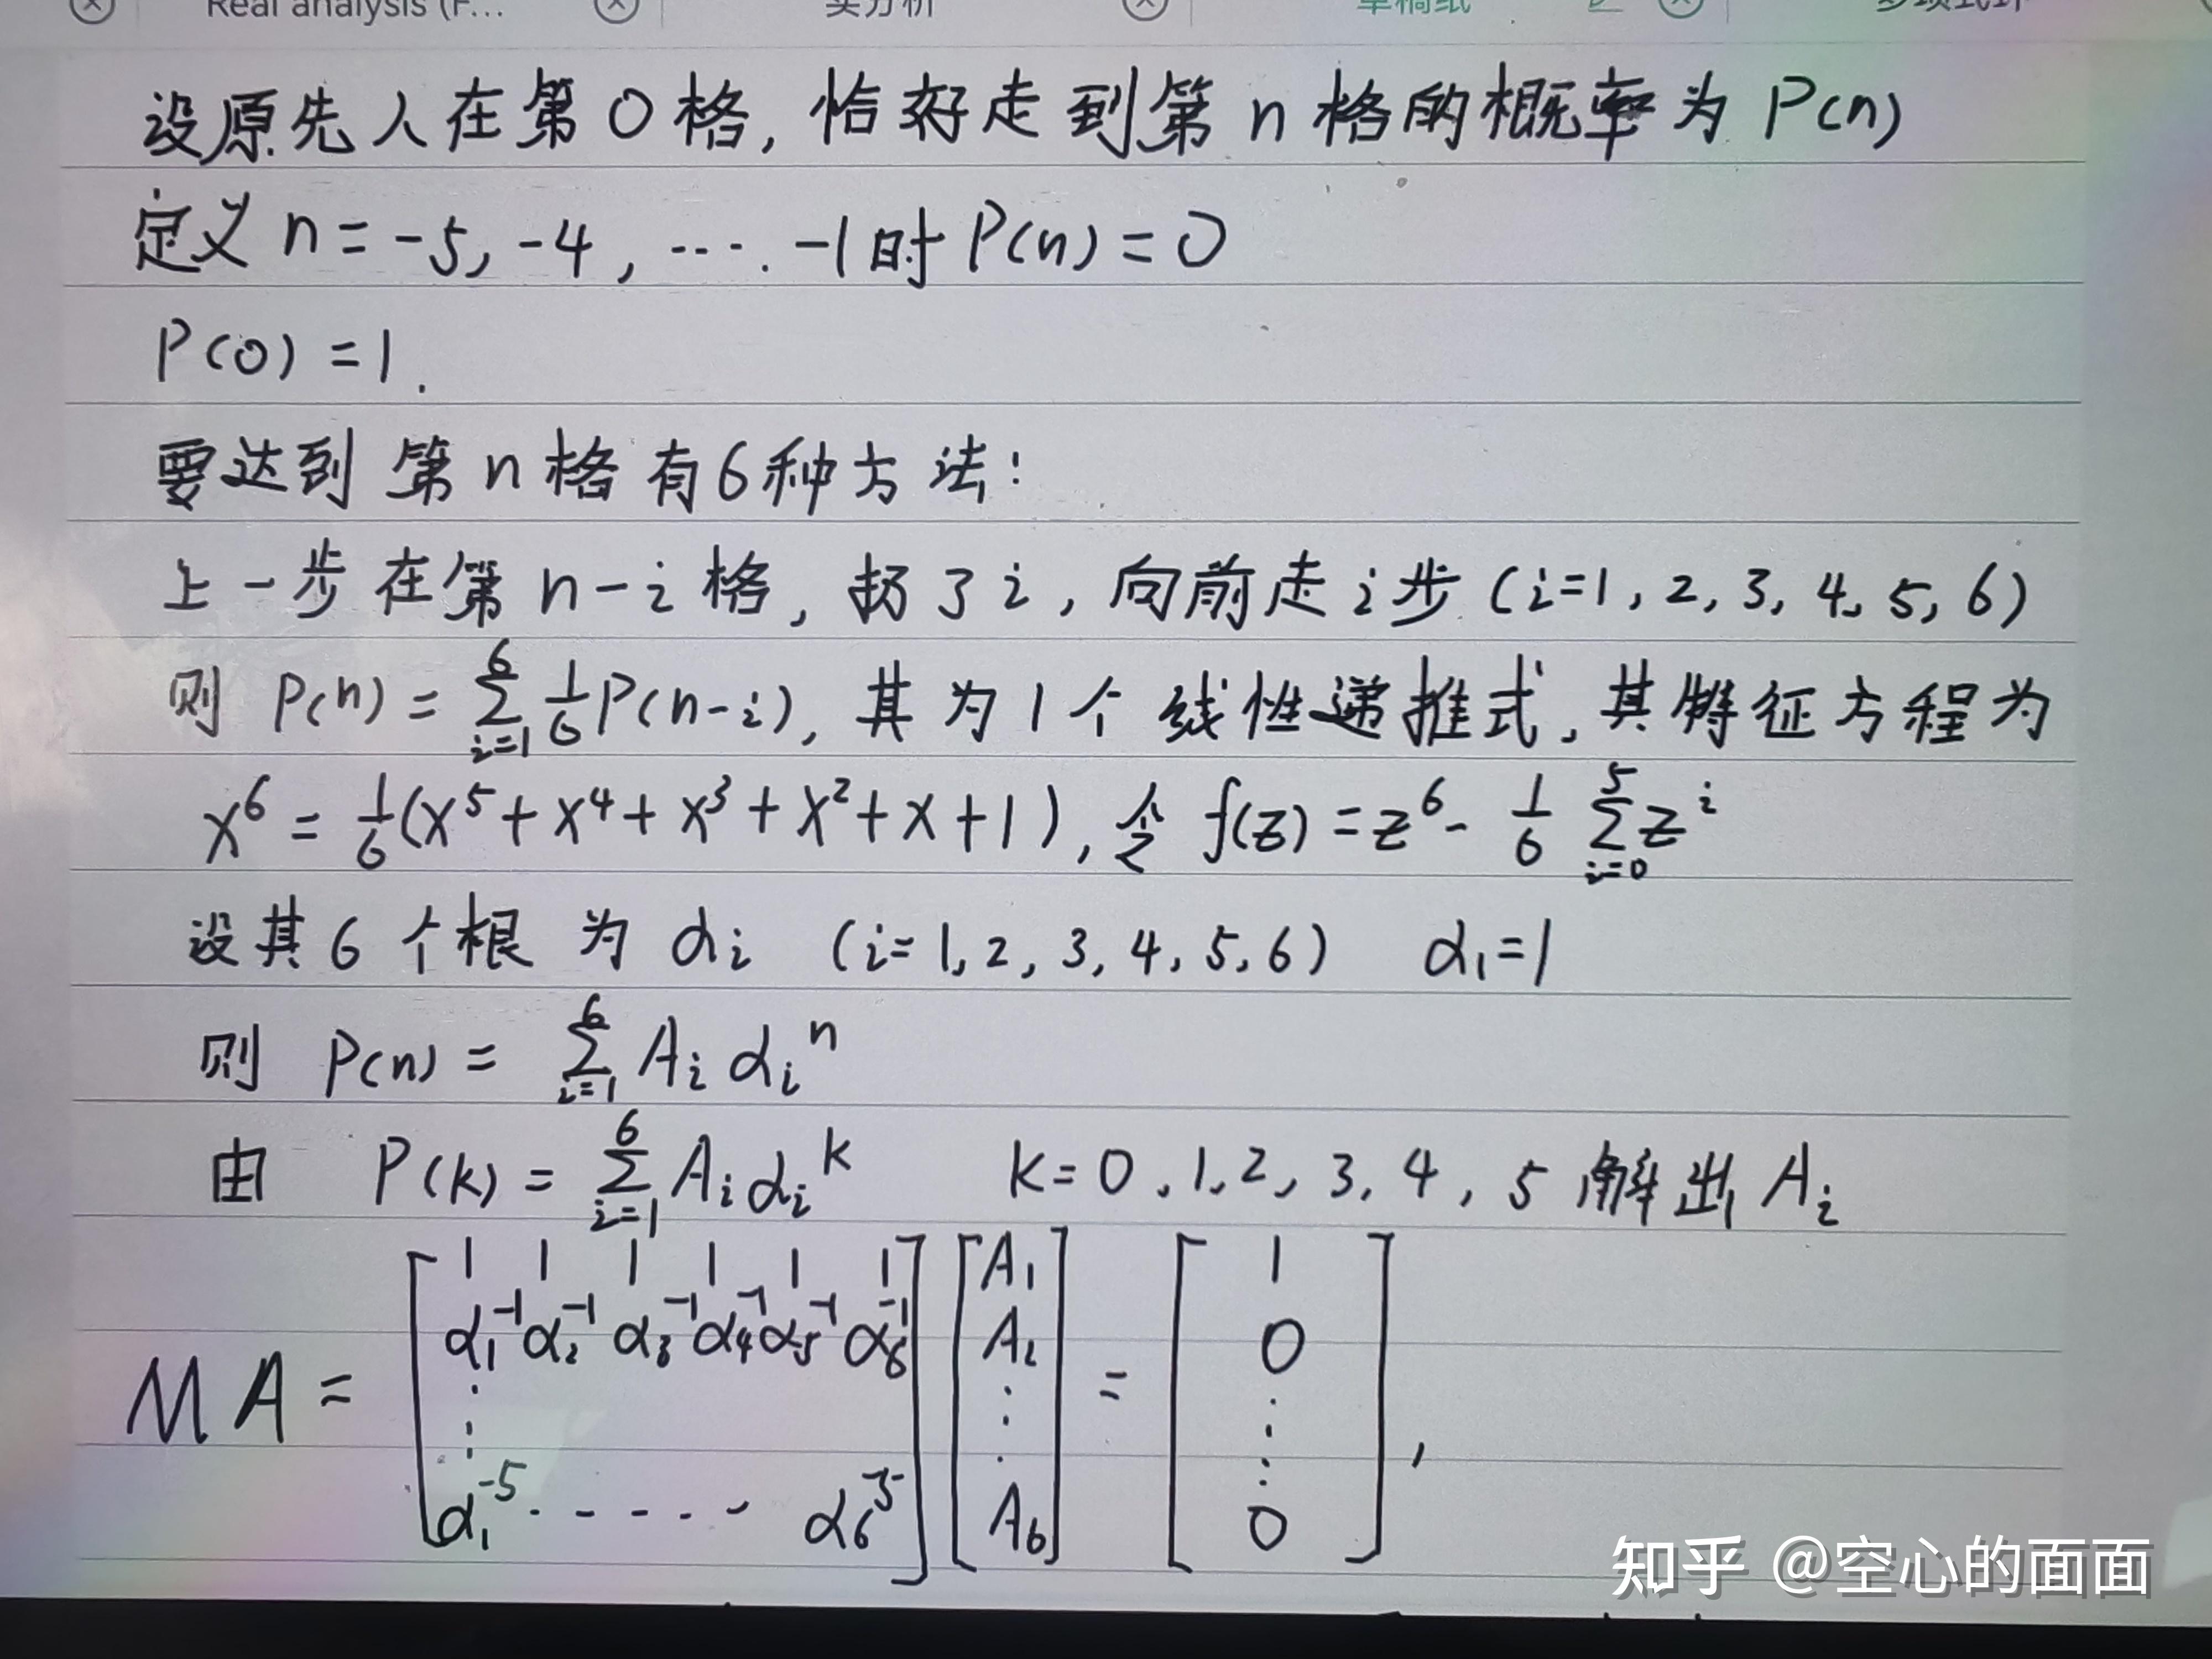 Real analysis (F...
实分析
草稿纸
设原先人在第0格,恰好走到第n格的概率为P(n)
定义n=-5,-4,....-1时P(n)=0
P(0)=1.
要达到第n格有6种方法:
上一步在第n-i格,扔了i,向前走i步(i=1,2,3,4,5,6)
则 P(n)=∑_{i=1}^{6} 1/6 P(n-i),其为1个线性递推式,其特征方程为
x⁶=1/6(x⁵+x⁴+x³+x²+x+1),令 f(z)=z⁶-1/6 ∑_{i=0}^{5} z^i
设其6个根为αi (i=1,2,3,4,5,6) α₁=1
则 P(n)=∑_{i=1}^{6} Ai αi^n
由 P(k)=∑_{i=1}^{6} Ai αi^k k=0,1,2,3,4,5解出Ai
MA=[1 1 1 1 1 1; α₁⁻¹ α₂⁻¹ α₃⁻¹ α₄⁻¹ α₅⁻¹ α₆⁻¹; ⋮; α₁⁻⁵ ..... α₆⁻⁵][A₁; A₂; ⋮; A₆]=[1; 0; ⋮; 0],
知乎 @空心的面面